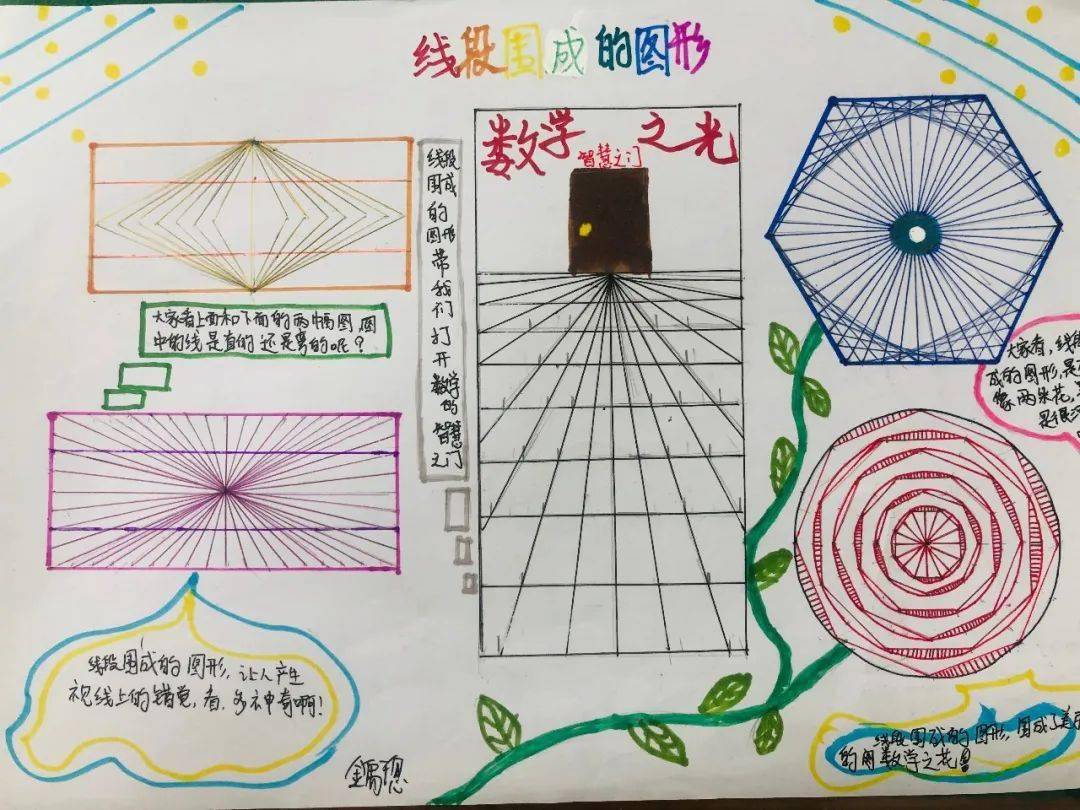 线段围成的图形
数学 之光
智慧之门
线段
围成
的
图形
带
我
们
打
开
数学
的
智慧
之门
大家看上面和下面的两幅图,图
中的线是直的还是弯的呢?
大家看,线段
成的图形,是
像两朵花,
是很
线段围成的图形,让人产生
视线上的错觉,看,多神奇啊!
线段围成的图形,围成了美
的用数学之花